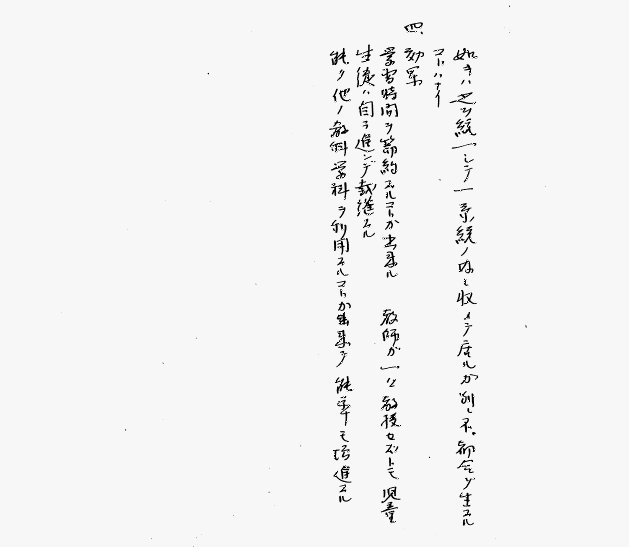 如キハ之ヲ統一シテ一系統ノ内ニ収メテ居ルガ別ニ不都合ヲ生ズル
コトハナイ
四、効果
学習時間ヲ節約スルコトガ出来ル 教師ガ一々教授セズトモ児童
生徒ハ自ラ進ンデ裁縫スル
能ク他ノ教科学科ヲ利用スルコトガ出来テ 能率モ増進スル